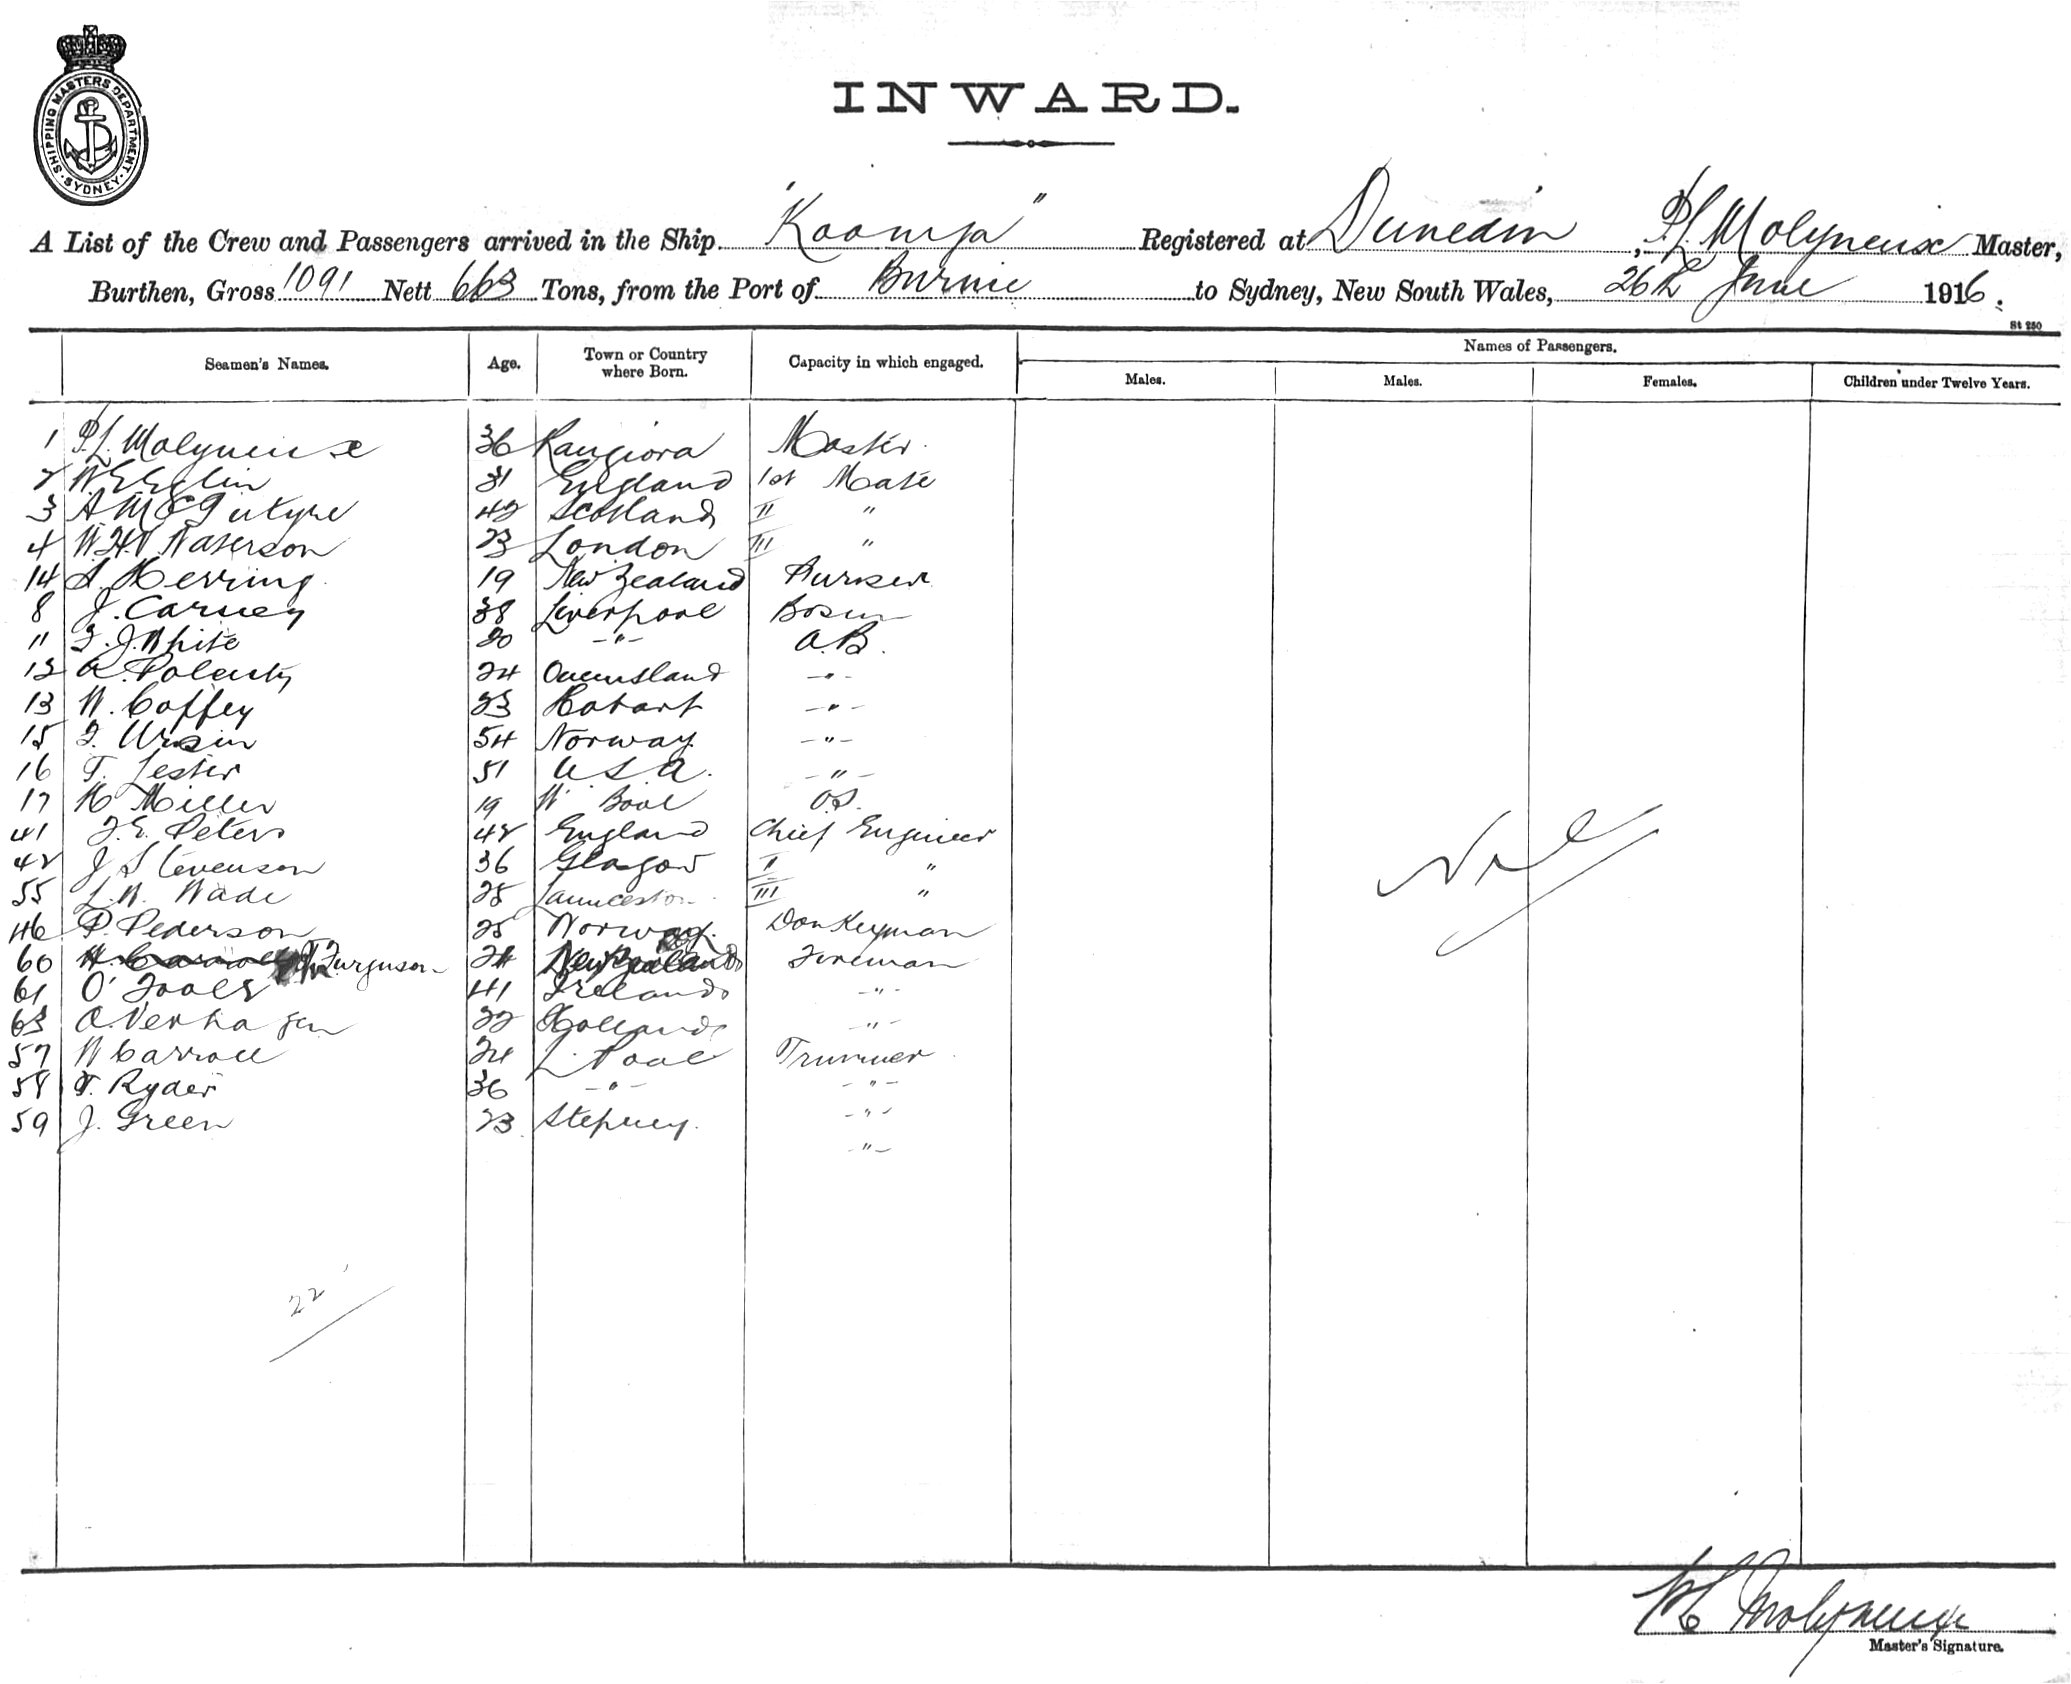 SHIPPING MASTERS DEPARTMENT
SYDNEY
INWARD.
A List of the Crew and Passengers arrived in the Ship "Koonya" Registered at Dunedin, P.L. Molyneux Master,
Burthen, Gross 1091 Nett 663 Tons, from the Port of Burnie to Sydney, New South Wales, 26th June 1916.
St 250
Seamen's Names. Age. Town or Country where Born. Capacity in which engaged. Names of Passengers.
Males. Males. Females. Children under Twelve Years.
1 P.L. Molyneux 36 Rangiora Master.
2 W E Eglin 31 England 1st Mate
3 A McIntyre 42 Scotland II "
4 W.H. Waterson 23 London III "
14 A. Herring 19 New Zealand Purser
8 J. Carney 38 Liverpool Bosun
11 F. J. White 20 -"- A.B.
12 A. 24 Queensland -"-
13 W. Coffey 23 Hobart -"-
15 F. Ursin 54 Norway -"-
16 T. Lester 51 U S A. -"-
17 H Miller 19 W' Bool O.S.
41 J.E. Peters 42 England Chief Engineer
42 J Stevenson 36 Glasgow II "
55 L.W. Wade 25 Launceston III "
46 P. Pederson 25 Norway. Donkeyman
60 Furguson 24 New Zealand Fireman
61 O'Toole 41 Ireland -"-
63 A. Verhagen 22 Holland -"-
57 W Carroll 24 L. Pool Trimmer
58 T. Ryder 36 -"- -"-
59 J. Green 23 Stepney. -"-
-"-
Nil
22
P L Molyneux
Master's Signature.